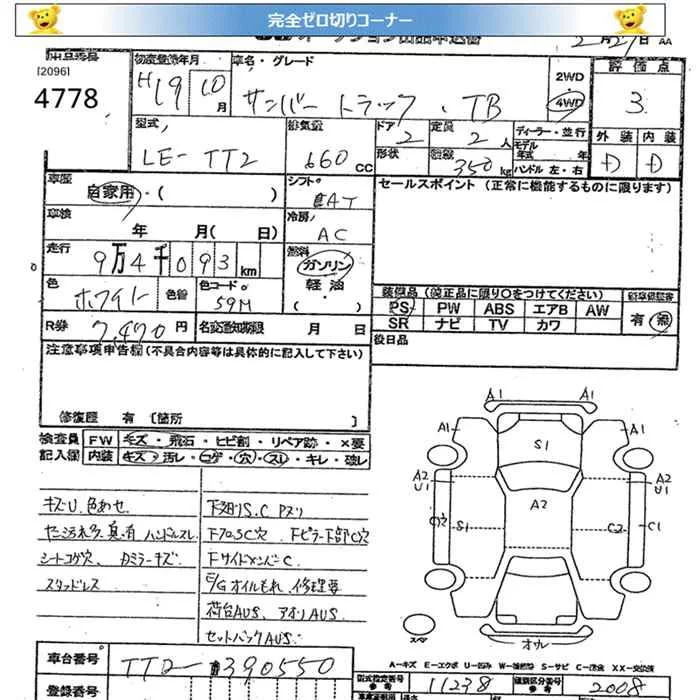 完全ゼロ切りコーナー
出品番号 初度登録年月 車名・グレード 評価点
[2096]
4778
H19 10月 サンバー トラック・TB
2WD
4WD
3
型式 LE-TT2
排気量 660CC
ドア 2
定員 2人
ディーラー・並行
モデル年式 年
形状
積載 350kg
ハンドル 左・右
外装 内装
D D
車歴 自家用・( )
シフト EAT
セールスポイント(正常に機能するものに限ります)
車検 年 月( 日)
冷房 AC
走行 9万4千093km
燃料 ガソリン
軽油・
( )
色 ホワイト 色替
色コード 59M
装備品(純正品に限り○をつけてください)
PS PW ABS エアB AW
SR ナビ TV カワ
新車保証書
有 無
R券 7,470円 名変通知期限 月 日
役日品
注意事項申告欄(不具合内容等は具体的に記入して下さい)
修復歴 有 [箇所 ]
検査員記入欄
FW キズ・飛石・ヒビ割・リペア跡・×要
内装 キズ・汚レ・コゲ・穴・スレ・キレ・破レ
キズU、色あせ
シートコゲ穴、
スタッドレス
下廻りS.C
下サイドメンバーC
E/Gオイルもれ、修理要
荷台AUS、アオリAUS
セットバックAUS
A1 A1
A1 A1
S1
A2 U1 A2 U1
A2
C2 S1 C2 C1
スペア オウル
A-キズ E-エクボ U-凹み W-補修跡 S-サビ C-腐食 XX-交換済
車台番号 TT2-390550
型式指定番号 参考 11238
類別区分番号 参考 2008
登録番号